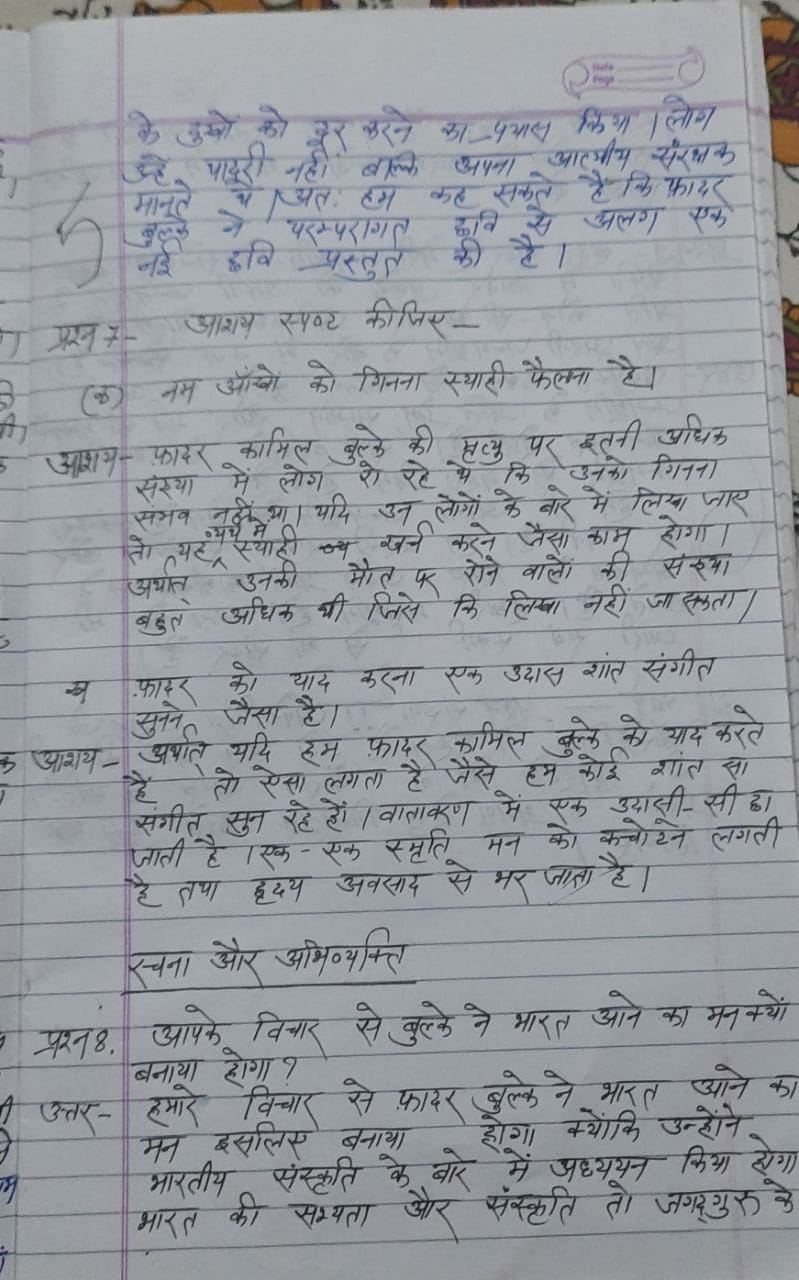 के दुखों को दूर करने का प्रयास किया। लोग
उन्हे पादरी नहीं बल्कि अपना आत्मीय संरक्षक
मानते थे। अतः हम कह सकते है कि फ़ादर
बुल्के ने परम्परागत छवि से अलग एक
नई छवि प्रस्तुत की है।
प्रश्न 7- आशय स्पष्ट कीजिए –
(क) नम आँखों को गिनना स्याही फैलना है।
आशय- फ़ादर कामिल बुल्के की मृत्यु पर इतनी अधिक
संख्या में लोग रो रहे थे कि उनको गिनना
संभव नहीं था। यदि उन लोगों के बारे में लिखा जाए
तो यह व्यर्थ में स्याही खर्च करने जैसा काम होगा।
अर्थात् उनकी मौत पर रोने वालों की संख्या
बहुत अधिक थी जिसे कि लिखा नहीं जा सकता।
ख फ़ादर को याद करना एक उदास शांत संगीत
सुनने जैसा है।
आशय – अर्थात् यदि हम फ़ादर कामिल बुल्के को याद करते
है तो ऐसा लगता है जैसे हम कोई शांत सा
संगीत सुन रहे हों। वातावरण में एक उदासी-सी छा
जाती है। एक-एक स्मृति मन को कचोटने लगती
है तथा हृदय अवसाद से भर जाता है।
रचना और अभिव्यक्ति
प्रश्न 8. आपके विचार से बुल्के ने भारत आने का मन क्यों
बनाया होगा?
उत्तर- हमारे विचार से फ़ादर बुल्के ने भारत आने का
मन इसलिए बनाया होगा क्योंकि उन्होंने
भारतीय संस्कृति के बारे में अध्ययन किया होगा
भारत की सभ्यता और संस्कृति तो जगद्गुरु के